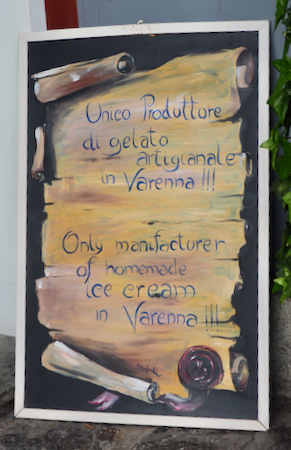 Unico Produttore
di gelato
artigianale
in Varenna !!!
Only manifacturer
of homemade
ice cream
in Varenna !!!